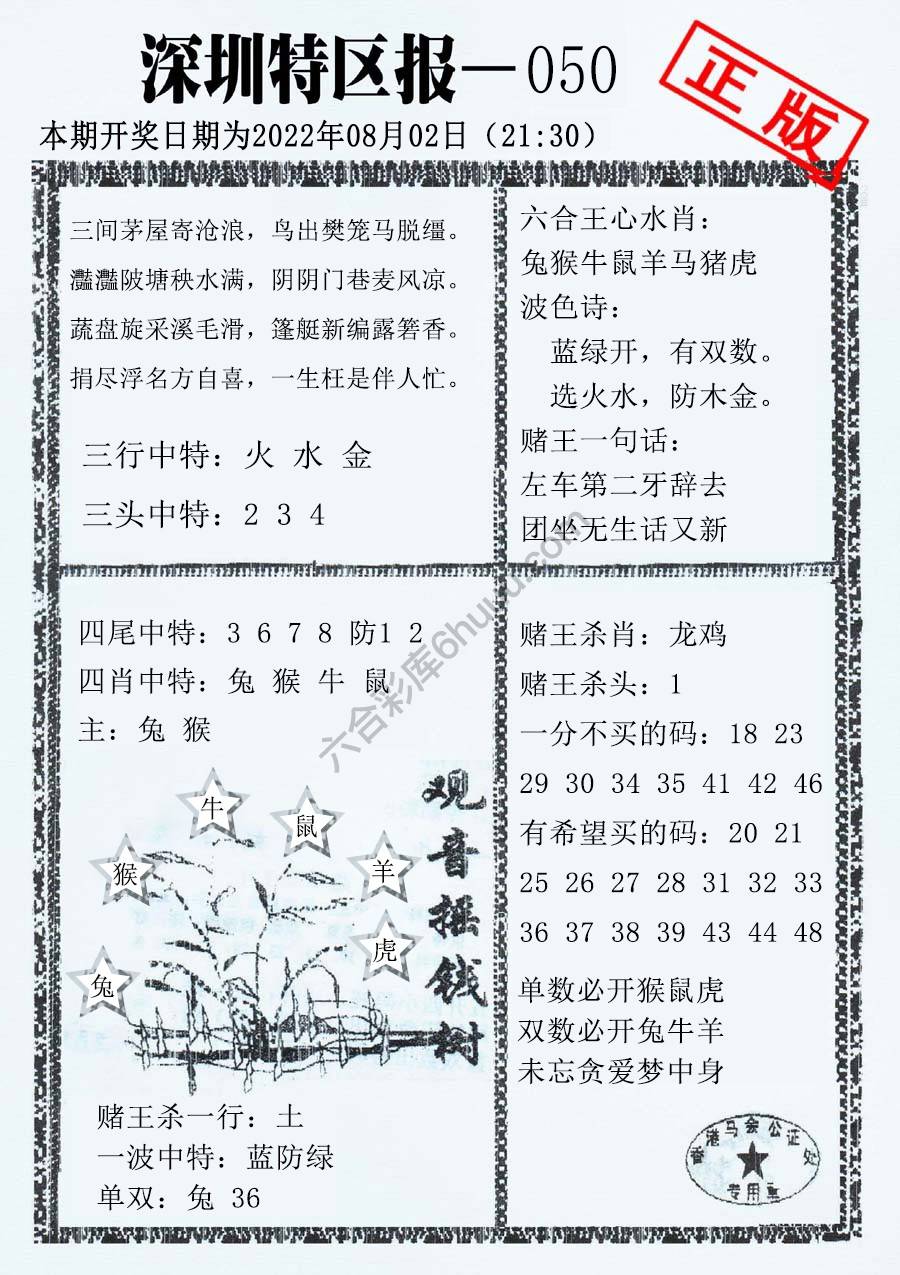 深圳特区报—050
正版
本期开奖日期为2022年08月02日（21:30）
三间茅屋寄沧浪，鸟出樊笼马脱缰。
灩灩陂塘秧水满，阴阴门巷麦风凉。
蔬盘旋采溪毛滑，篷艇新编露箬香。
捐尽浮名方自喜，一生枉是伴人忙。
三行中特：火 水 金
三头中特：2 3 4
六合王心水肖：
兔猴牛鼠羊马猪虎
波色诗：
蓝绿开，有双数。
选火水，防木金。
赌王一句话：
左车第二牙辞去
团坐无生话又新
四尾中特：3 6 7 8 防1 2
四肖中特：兔 猴 牛 鼠
主：兔 猴
牛
鼠
猴
羊
虎
兔
观音摇钱树
赌王杀一行：土
一波中特：蓝防绿
单双：兔 36
赌王杀肖：龙鸡
赌王杀头：1
一分不买的码：18 23
29 30 34 35 41 42 46
有希望买的码：20 21
25 26 27 28 31 32 33
36 37 38 39 43 44 48
单数必开猴鼠虎
双数必开兔牛羊
未忘贪爱梦中身
香港马会公证处
专用章
六合彩库6huuu.com